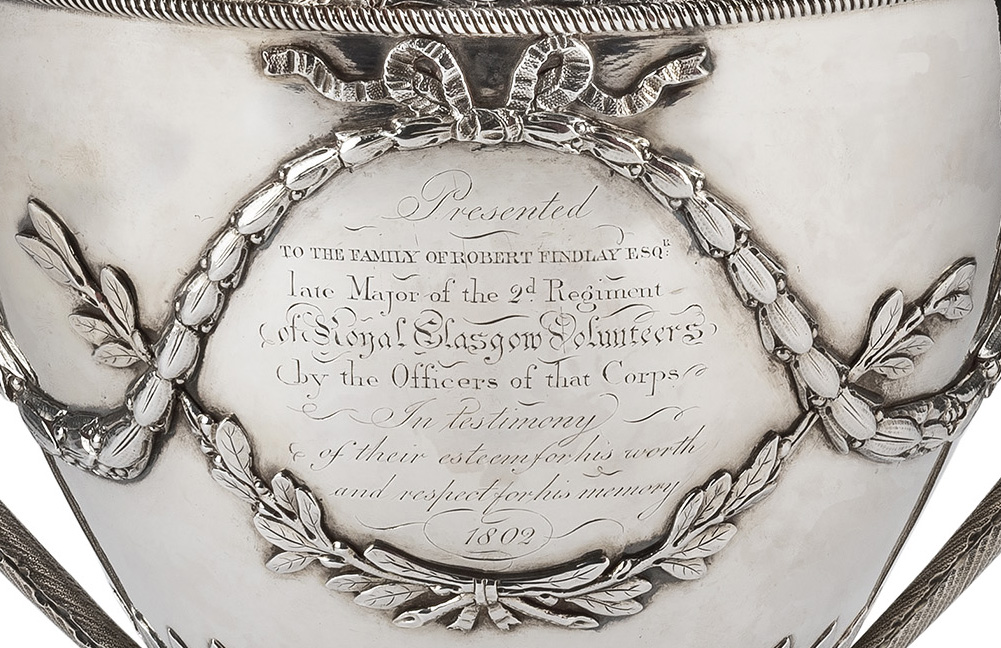 Presented
TO THE FAMILY OF ROBERT FINDLAY ESQ.^R
late Major of the 2^d Regiment
of Royal Glasgow Volunteers
by the Officers of that Corps
In testimony
of their esteem for his worth
and respect for his memory
1802